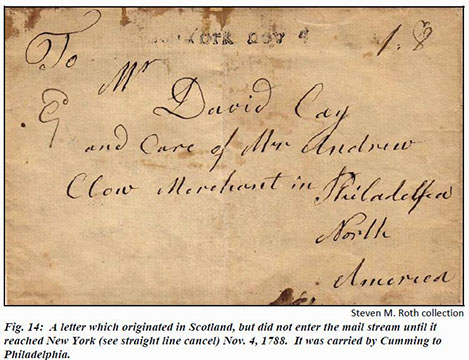 To
York nov 4
1.8
Mr
David Cay
and Care of Mr Andrew
Clow Merchant in Philadelfea
North
America
Steven M. Roth collection
Fig. 14: A letter which originated in Scotland, but did not enter the mail stream until it
reached New York (see straight line cancel) Nov. 4, 1788. It was carried by Cumming to
Philadelphia.